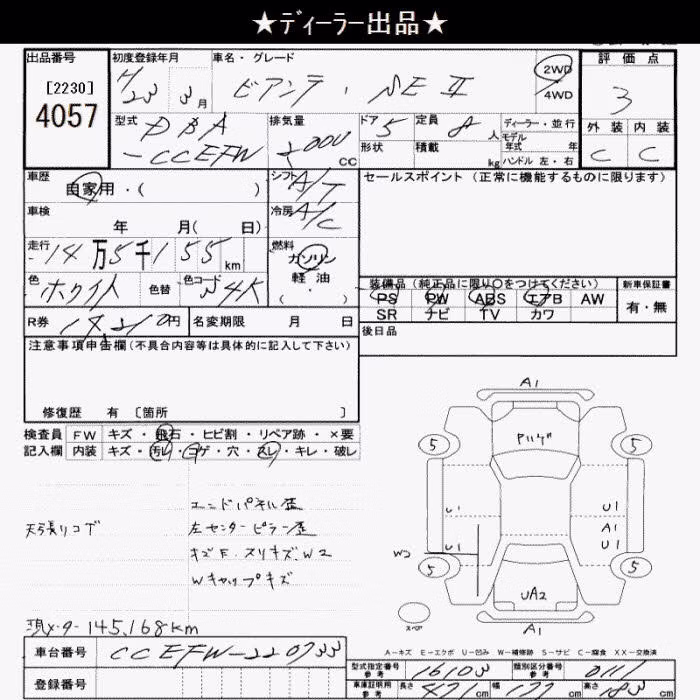 ★ディーラー出品★
出品番号 初度登録年月 車名・グレード 評価点
[2230] H23 3月 ビアンテ 2WD 3
4057 4WD
型式 DBA 排気量 2000 cc ドア 5 定員 8人 ディーラー・並行 外装 内装
-CCEFW 形状 積載 kg モデル年式 年 C C
ハンドル 左・右
車歴 自家用・( ) シフト A/T セールスポイント (正常に機能するものに限ります)
車検 年 月( 日) 冷房 A/C
走行 14万5千155km 燃料 ガソリン
軽油
( ・ )
色 ホワイト 色替 色コード 34K 装備品 (純正品に限り○をつけてください) 新車保証書
PS PW ABS エアB AW 有・無
SR ナビ TV カワ
R券 円 名変期限 月 日 後日品
注意事項申告欄 (不具合内容等は具体的に記入して下さい)
修復歴 有 [箇所 ]
検査員 FW キズ・飛石・ヒビ割・リペア跡・×要
記入欄 内装 キズ・汚レ・コゲ・穴・スレ・キレ・破レ
A1
5 5
エンドパネル歪
天張リコゲ 左センターピラー歪
キズE.スリキズW2
Wキャップキズ
U1 U1
A1
U1 U1
W2
5 5
UA2
スペア A1
現メータ 145,168km
A-キズ E-エクボ U-凹み W-補修跡 S-サビ C-腐食 XX-交換済
車台番号 CCEFW-220733
型式指定番号 参考 16103 類別区分番号 参考 0111
登録番号 車庫証明用 参考 長さ 471cm 幅 177cm 高さ 183cm